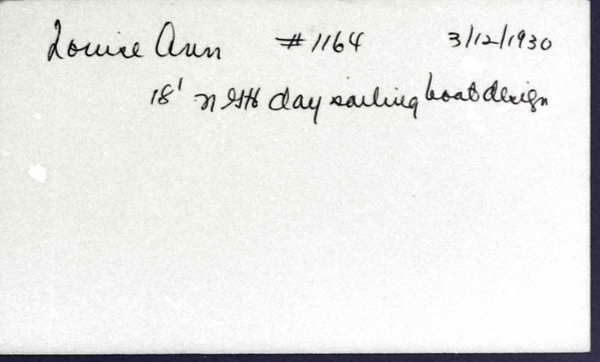 Louise Ann #1164 3/12/1930
18' NGH day sailing boat design